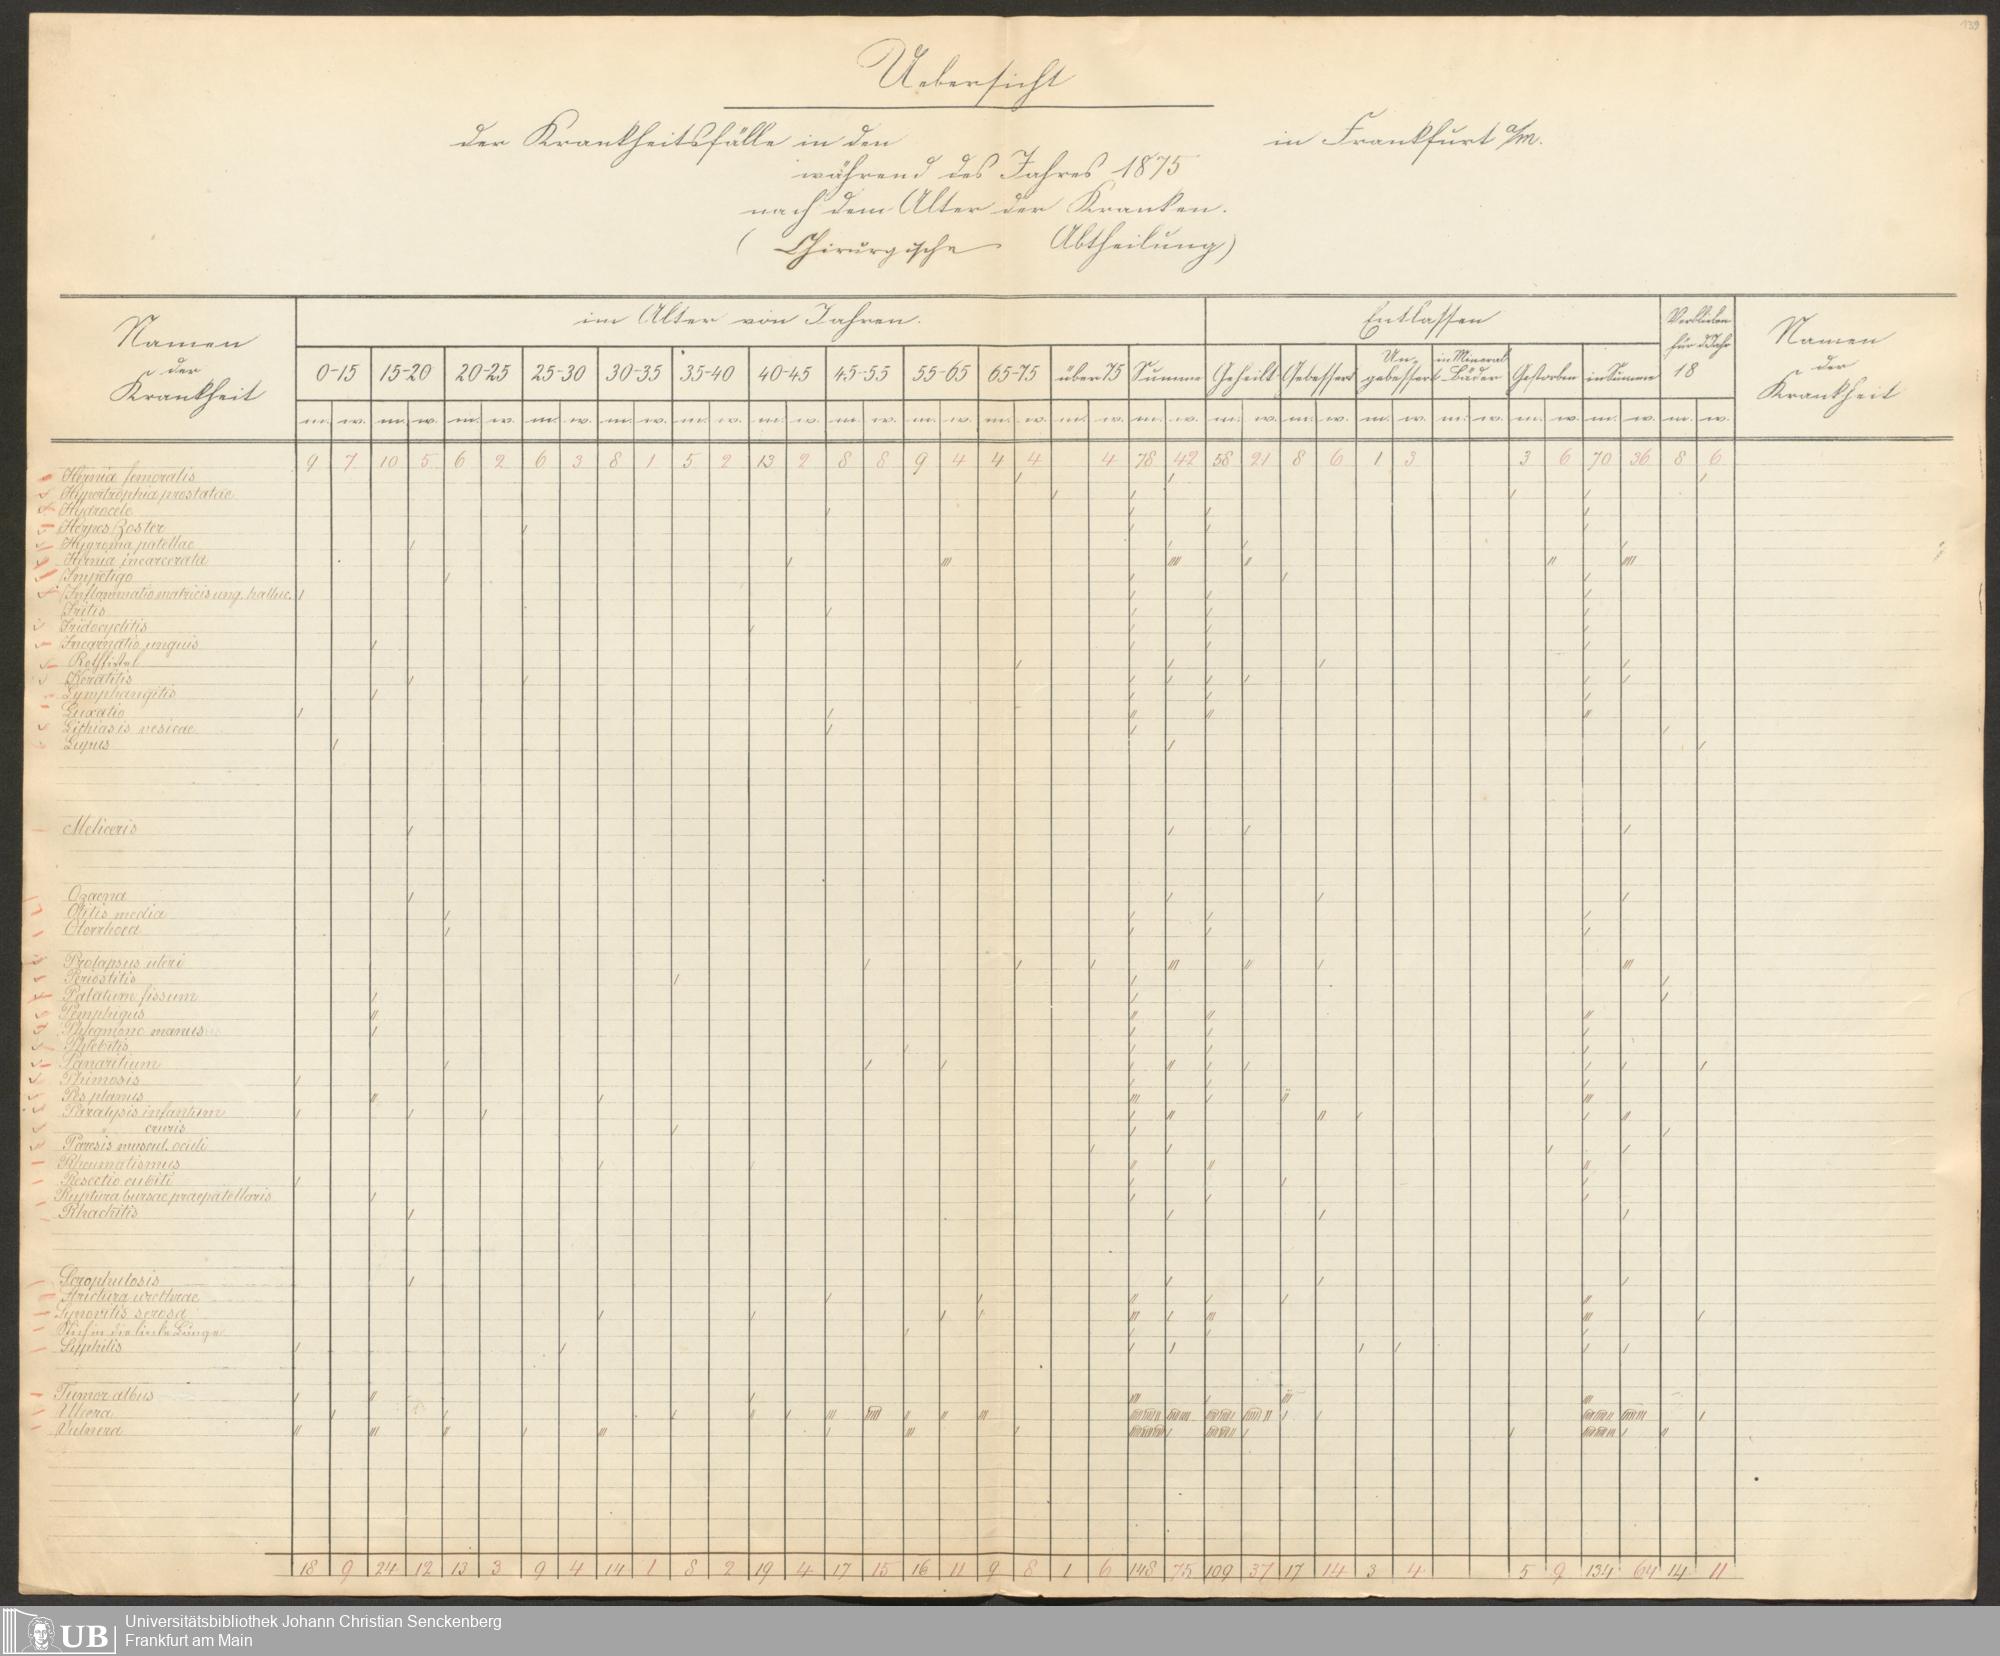 139
Uebersicht
der Krankheitsfälle in den in Frankfurt a/M.
während des Jahres 1875
nach dem Alter der Kranken.
(Chirurgische Abtheilung)
Namen der Krankheit
im Alter von Jahren.
Entlassen
Verbleiben für d. Jahr 18
Namen der Krankheit
0-15 15-20 20-25 25-30 30-35 35-40 40-45 45-55 55-65 65-75 über 75 Summe Geheilt Gebessert Un-gebessert in Mineral-Bäder Gestorben in Summe
m. w. m. w. m. w. m. w. m. w. m. w. m. w. m. w. m. w. m. w. m. w. m. w. m. w. m. w. m. w. m. w. m. w. m. w. m. w.
9 7 10 5 6 2 6 3 8 1 5 2 13 2 8 8 9 4 4 4 4 78 42 58 21 8 6 1 3 3 6 70 36 8 6
Hernia femoralis
Hypertrophia prostatae
Hydrocele
Herpes Zoster
Hygroma patellae
Hernia incarcerata
Impetigo
Inflammatio matricis ung. halluc.
Iritis
Iridocyclitis
Incarnatio unguis
Kothfistel
Keratitis
Lymphangitis
Luxatio
Lithiasis vesicae
Lupus
Meliceris
Ozaena
Otitis media
Otorrhoea
Prolapsus uteri
Periostitis
Palatum fissum
Pemphigus
Phlegmone manus
Phlebitis
Panaritium
Phimosis
Pes planus
Paralysis infantum
" cruris
Paresis muscul. oculi
Rheumatismus
Resectio cubiti
Ruptura bursae praepatellaris
Rhachitis
Scrophulosis
Strictura urethrae
Synovitis serosa
Stich in die linke Lunge
Syphilis
Tumor albus
Ulcera
Vulnera
18 9 24 12 13 3 9 4 14 1 8 2 19 4 17 15 16 11 9 8 1 6 148 75 109 37 17 14 3 4 5 9 134 64 14 11
UB
Universitätsbibliothek Johann Christian Senckenberg
Frankfurt am Main